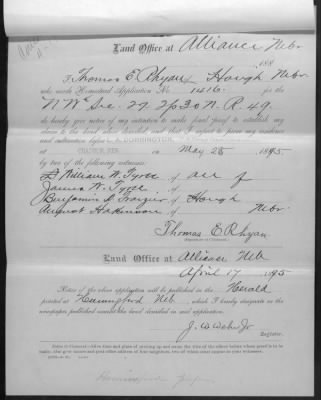 Land Office at Alliance Nebr
188
I, Thomas E. Rhyan, of Hough Nebr
who made Homestead Application No. 1416 for the
N W ¼ Sec. 27 Tp 30 N. R. 49.
do hereby give notice of my intention to make final proof to establish my
claim to the land above described, and that I expect to prove my residence
and cultivation before
at CHADRON, NEB. on May 25 1895
by two of the following witnesses:
William W. Tyree of all of
James W. Tyree of
Benjamin of Hough
August of Nebr.
Thomas E. Rhyan
(Signature of Claimant.)
Land Office at Alliance Neb
April 17 1895
Notice of the above application will be published in the Herald
printed at Hemingford Neb, which I hereby designate as the
newspaper published nearest the land described in said application.
J. W. Wehn Jr
Register.